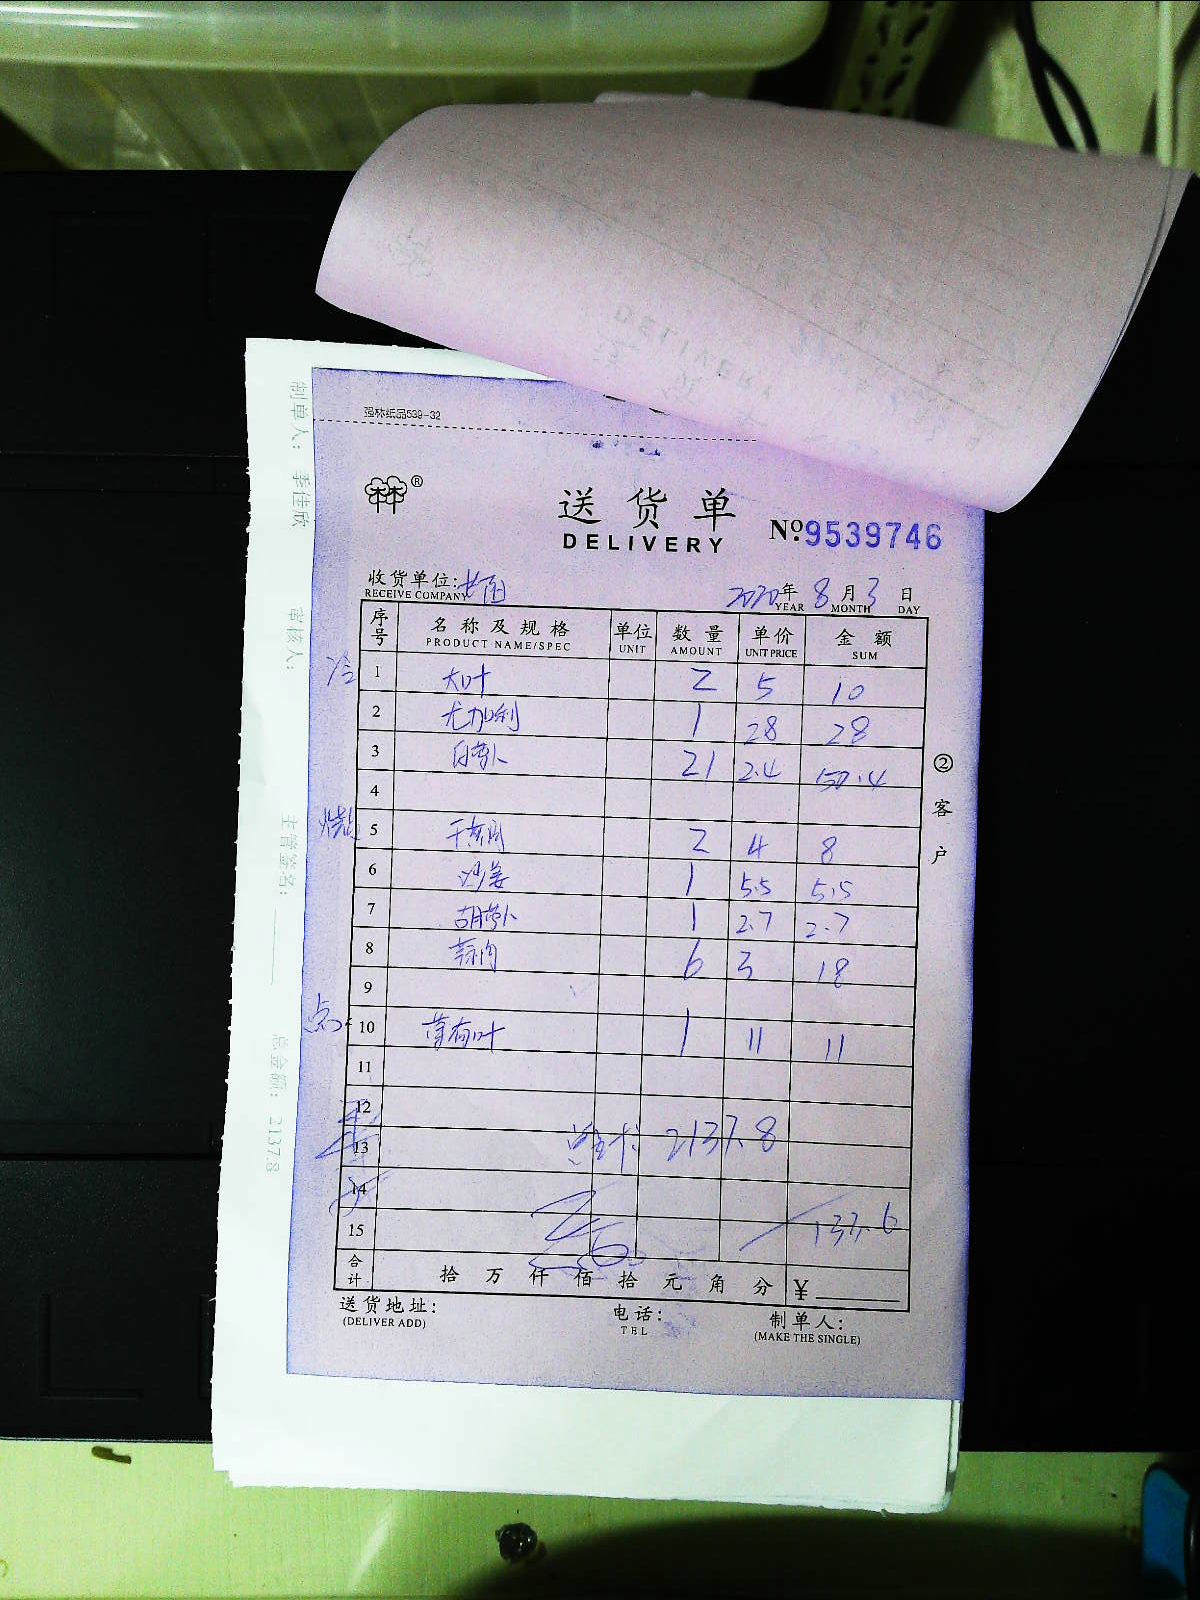 强林纸品539-32
®
送货单
DELIVERY
№:9539746
收货单位:
RECEIVE COMPANY
2020年 8月 3日
YEAR MONTH DAY
序号 名称及规格 单位 数量 单价 金额
PRODUCT NAME/SPEC UNIT AMOUNT UNIT PRICE SUM
冷 1 大叶 2 5 10
2 尤加利 1 28 28
3 白萝卜 21 2.4 50.4
4
烧 5 2 4 8
6 沙姜 1 5.5 5.5
7 胡萝卜 1 2.7 2.7
8 蒜肉 6 3 18
9
点 10 薄荷叶 1 11 11
11
12
13 2137.8
14
15 133.6
合计 拾 万 仟 佰 拾 元 角 分 ¥
送货地址:
(DELIVER ADD)
电话:
TEL
制单人:
(MAKE THE SINGLE)
②客户
制单人: 李佳欣
审核人:
主管签名:
总金额: 2137.8
DELIVERY